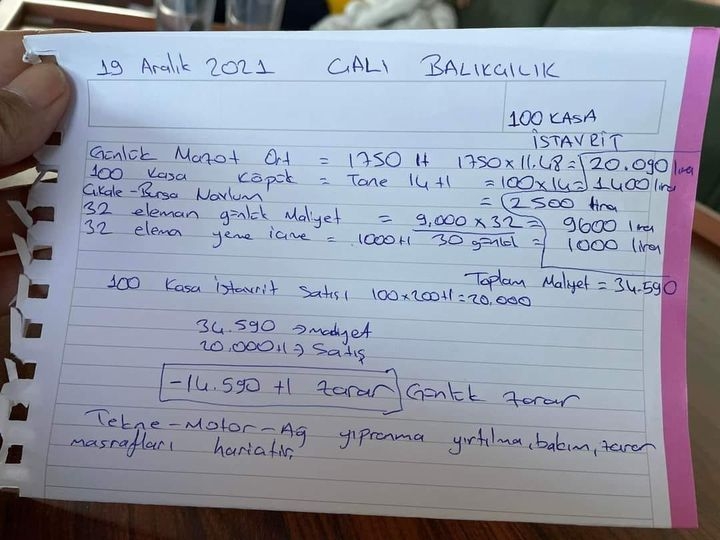 19 Aralık 2021 GALI BALIKCILIK
100 KASA
İSTAVRİT
Günlük Mazot Ort = 1750 lt 1750 x 11.48 = 20.090 lira
100 Kasa Köpük = Tane 14 tl = 100 x 14 = 1400 lira
Ç.kale - Bursa Navlun = 2500 lira
32 eleman günlük Maliyet = 9,000 x 32 = 9600 lira
32 elema yeme icme = 1000 tl 30 günlük = 1000 lira
Toplam Maliyet = 34.590
100 Kasa istavrit satışı 100 x 200 tl = 20.000
34.590 → maliyet
20.000 tl → Satış
-14.590 tl zarar Günlük zarar
Tekne - Motor - Ağ yıpranma yırtılma, bakım, zarar
masrafları hariçtir.